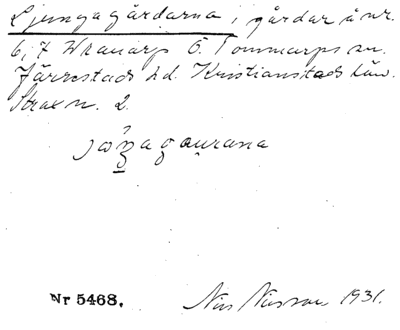 Ljungagårdarna, gårdar å nr.
6, 7 Wranarp Ö. Tommarps sn.
Järrestads hd. Kristianstads län.
Strax n. 2.
Nr 5468. Nils Nilsson 1931.